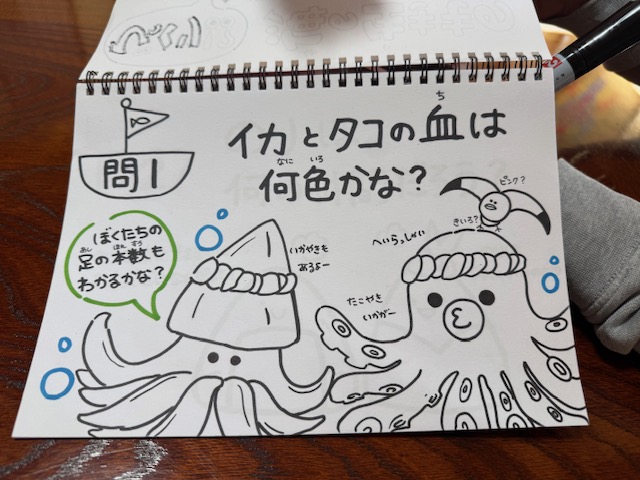 問1
イカとタコの血は
ち
何色かな?
なに いろ
ぼくたちの
足の本数も
あし ほん すう
わかるかな?
いかやきも
あるよー
へいらっしゃい
きいろ?
ピンク?
たこやき
いかがー